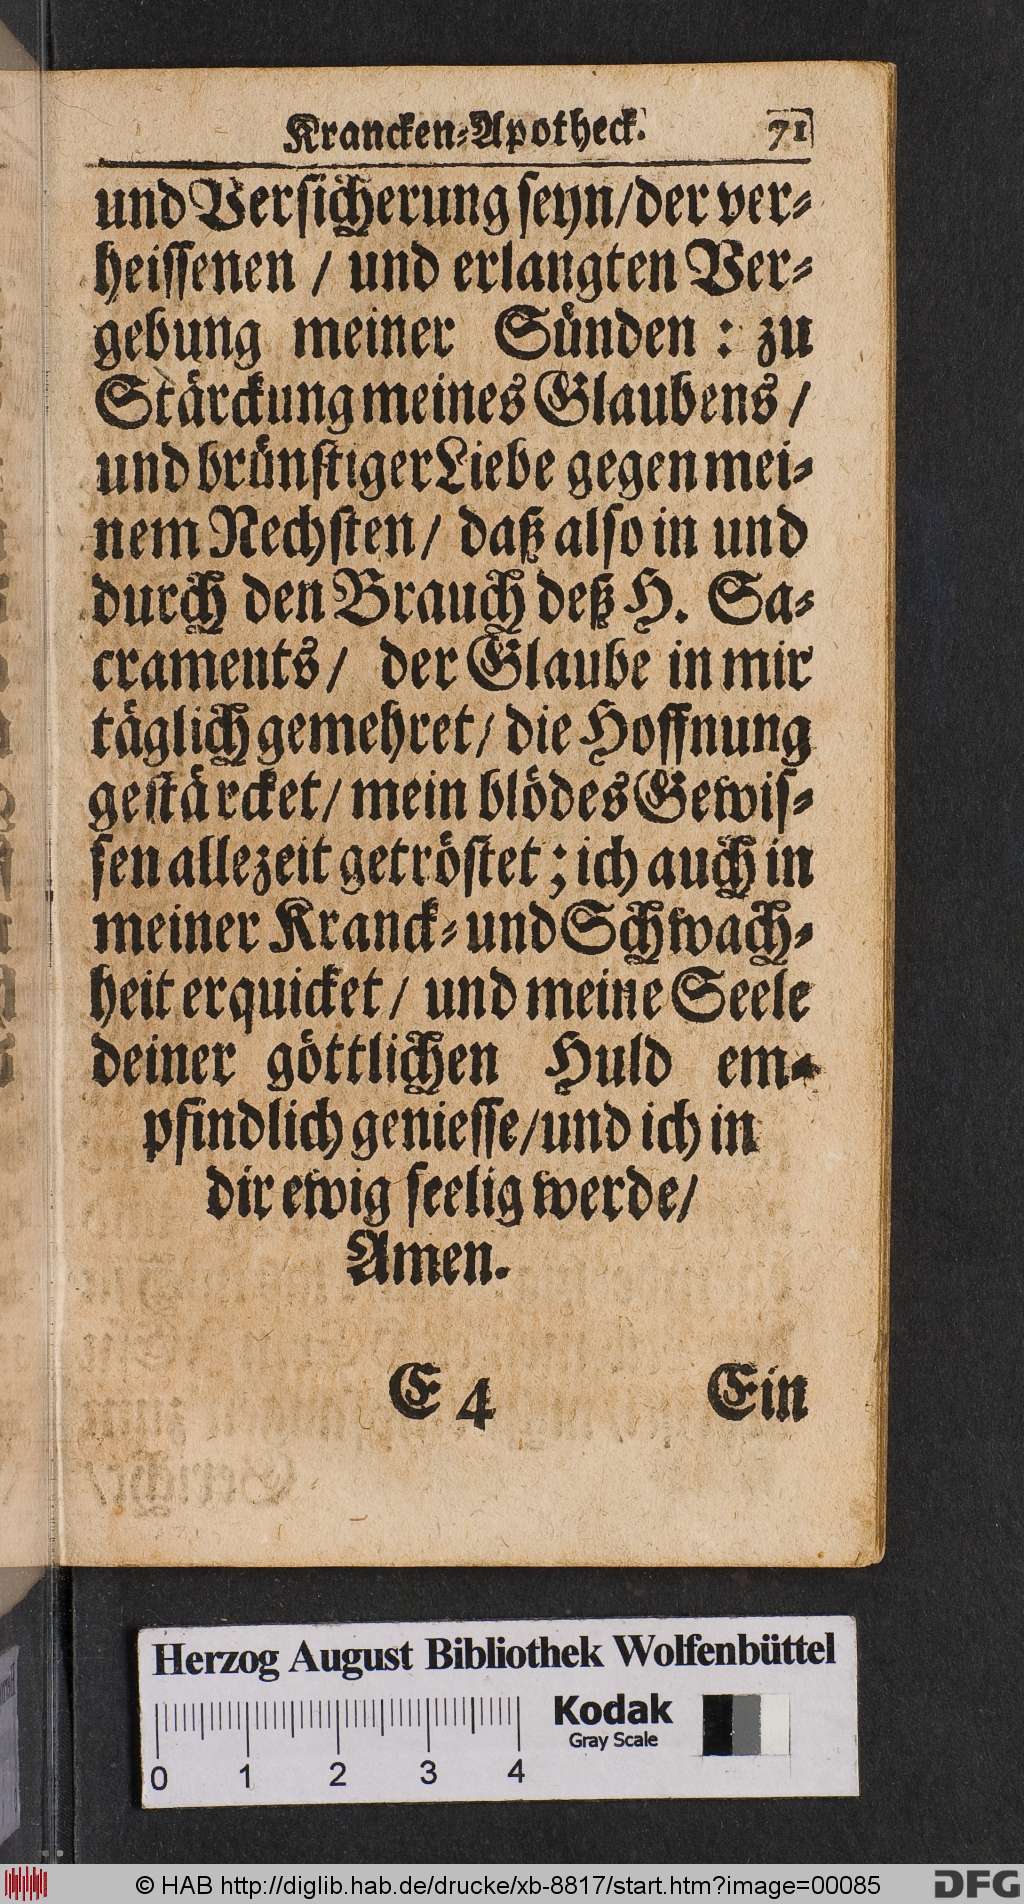 Krancken-Apotheck. 71
und Versicherung seyn/der ver-
heissenen / und erlangten Ver-
gebung meiner Sünden : zu
Stärckung meines Glaubens /
und brünstiger Liebe gegen mei-
nem Nechsten / daß also in und
durch den Brauch deß H. Sa-
craments / der Glaube in mir
täglich gemehret / die Hoffnung
gestärcket / mein blödes Gewis-
sen allezeit getröstet ; ich auch in
meiner Kranck- und Schwach-
heit erquicket / und meine Seele
deiner göttlichen Huld em-
pfindlich geniesse/und ich in
dir ewig seelig werde/
Amen.
E 4 Ein
Herzog August Bibliothek Wolfenbüttel
Kodak
Gray Scale
0 1 2 3 4
© HAB http://diglib.hab.de/drucke/xb-8817/start.htm?image=00085
DFG